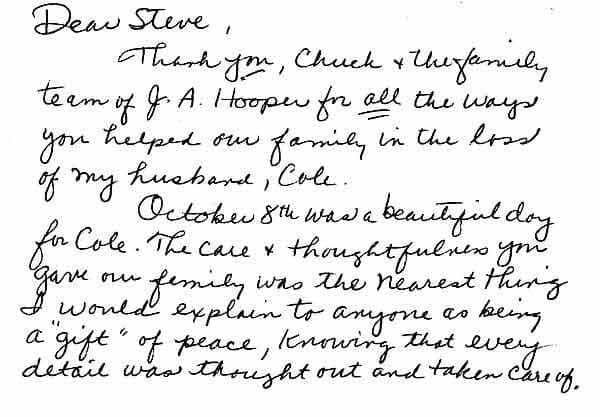 Dear Steve,
Thank you, Chuck & the family
team of J. A. Hooper for all the ways
you helped our family in the loss
of my husband, Cole.
October 8th was a beautiful day
for Cole. The care & thoughtfulness you
gave our family was the nearest thing
I would explain to anyone as being
a "gift" of peace, knowing that every
detail was thought out and taken care of.